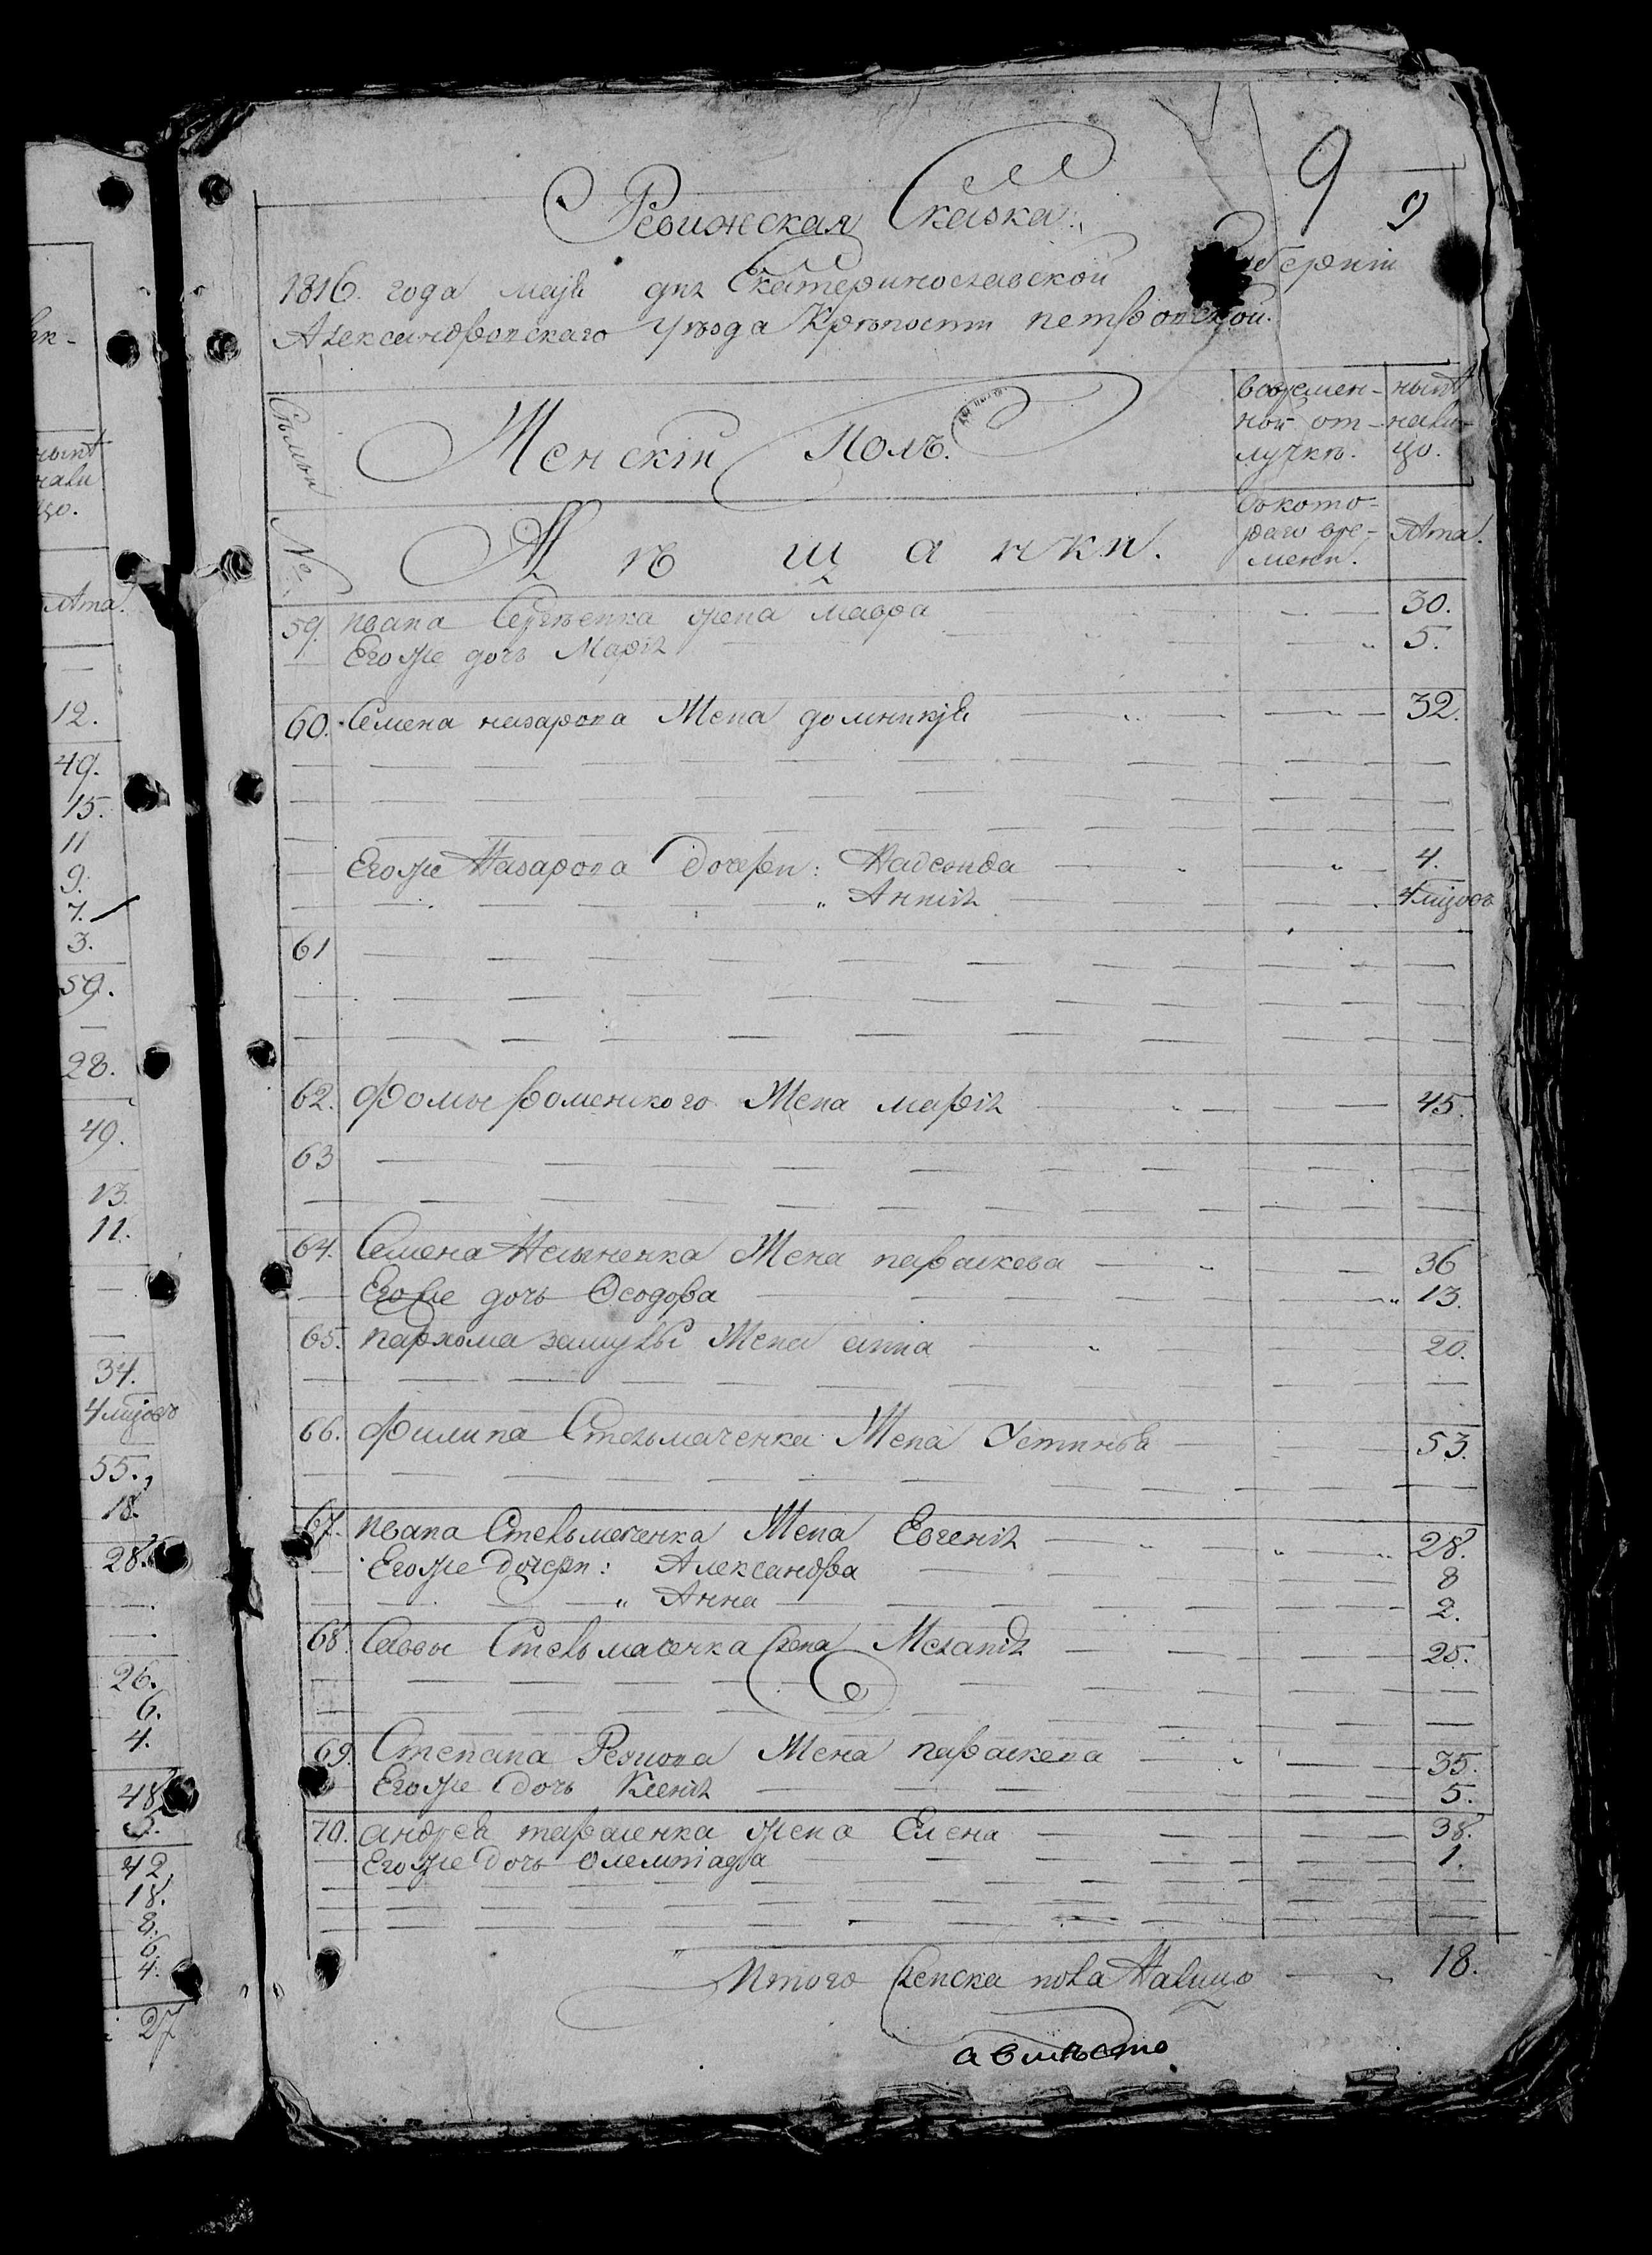 9
9
Ревижская Сказка.
1816. года маія дня Екатеринославской Губерніи
Александровскаго Уѣзда Крѣпости петровской.
Сѣмьи
Женскій Полъ.
вовремен-
ной от-
лучкѣ.
нынѣ
нали-
цо.
№
Мѣщанки.
съкото-
раго вре-
мени.
Лта.
59. ивана Сергѣенка жена мавра 30.
Егоже дочь Марія 5.
60. Семена назарова Жена домникія 32.
Егоже Назарова дочери: 4.
„ Анисія 4 мцовъ
61
62. Фомы фоменкого Жена марія 45.
63
64. Семена Жена параскева 36
Егоже дочь Ѳеодора 13.
65. пархома Жена анна 20.
66. Филипа Стельмаченка Жена Устинья 53.
67. ивана Стельмаченка Жена Евгенія 28.
Егоже дочери: Александра 8
„ Анна 2.
68. Саввы Стельмаченка жена Меланія 25.
69. Степана Жена параскева 35.
Егоже дочь Ксенія 5.
70. андрея тарасенка жена Елена 38.
Егоже дочь олемпіада 1.
Итого женска пола Налицо 18.
авмѣсто
нынѣ
нали
цо.
Лта.
12.
49.
15.
11
9.
7.
3.
59.
28.
49.
13.
11.
34.
4 мцовъ
55.
18.
28.
26.
6.
4.
48
5.
42
18.
8.
6.
4.
27